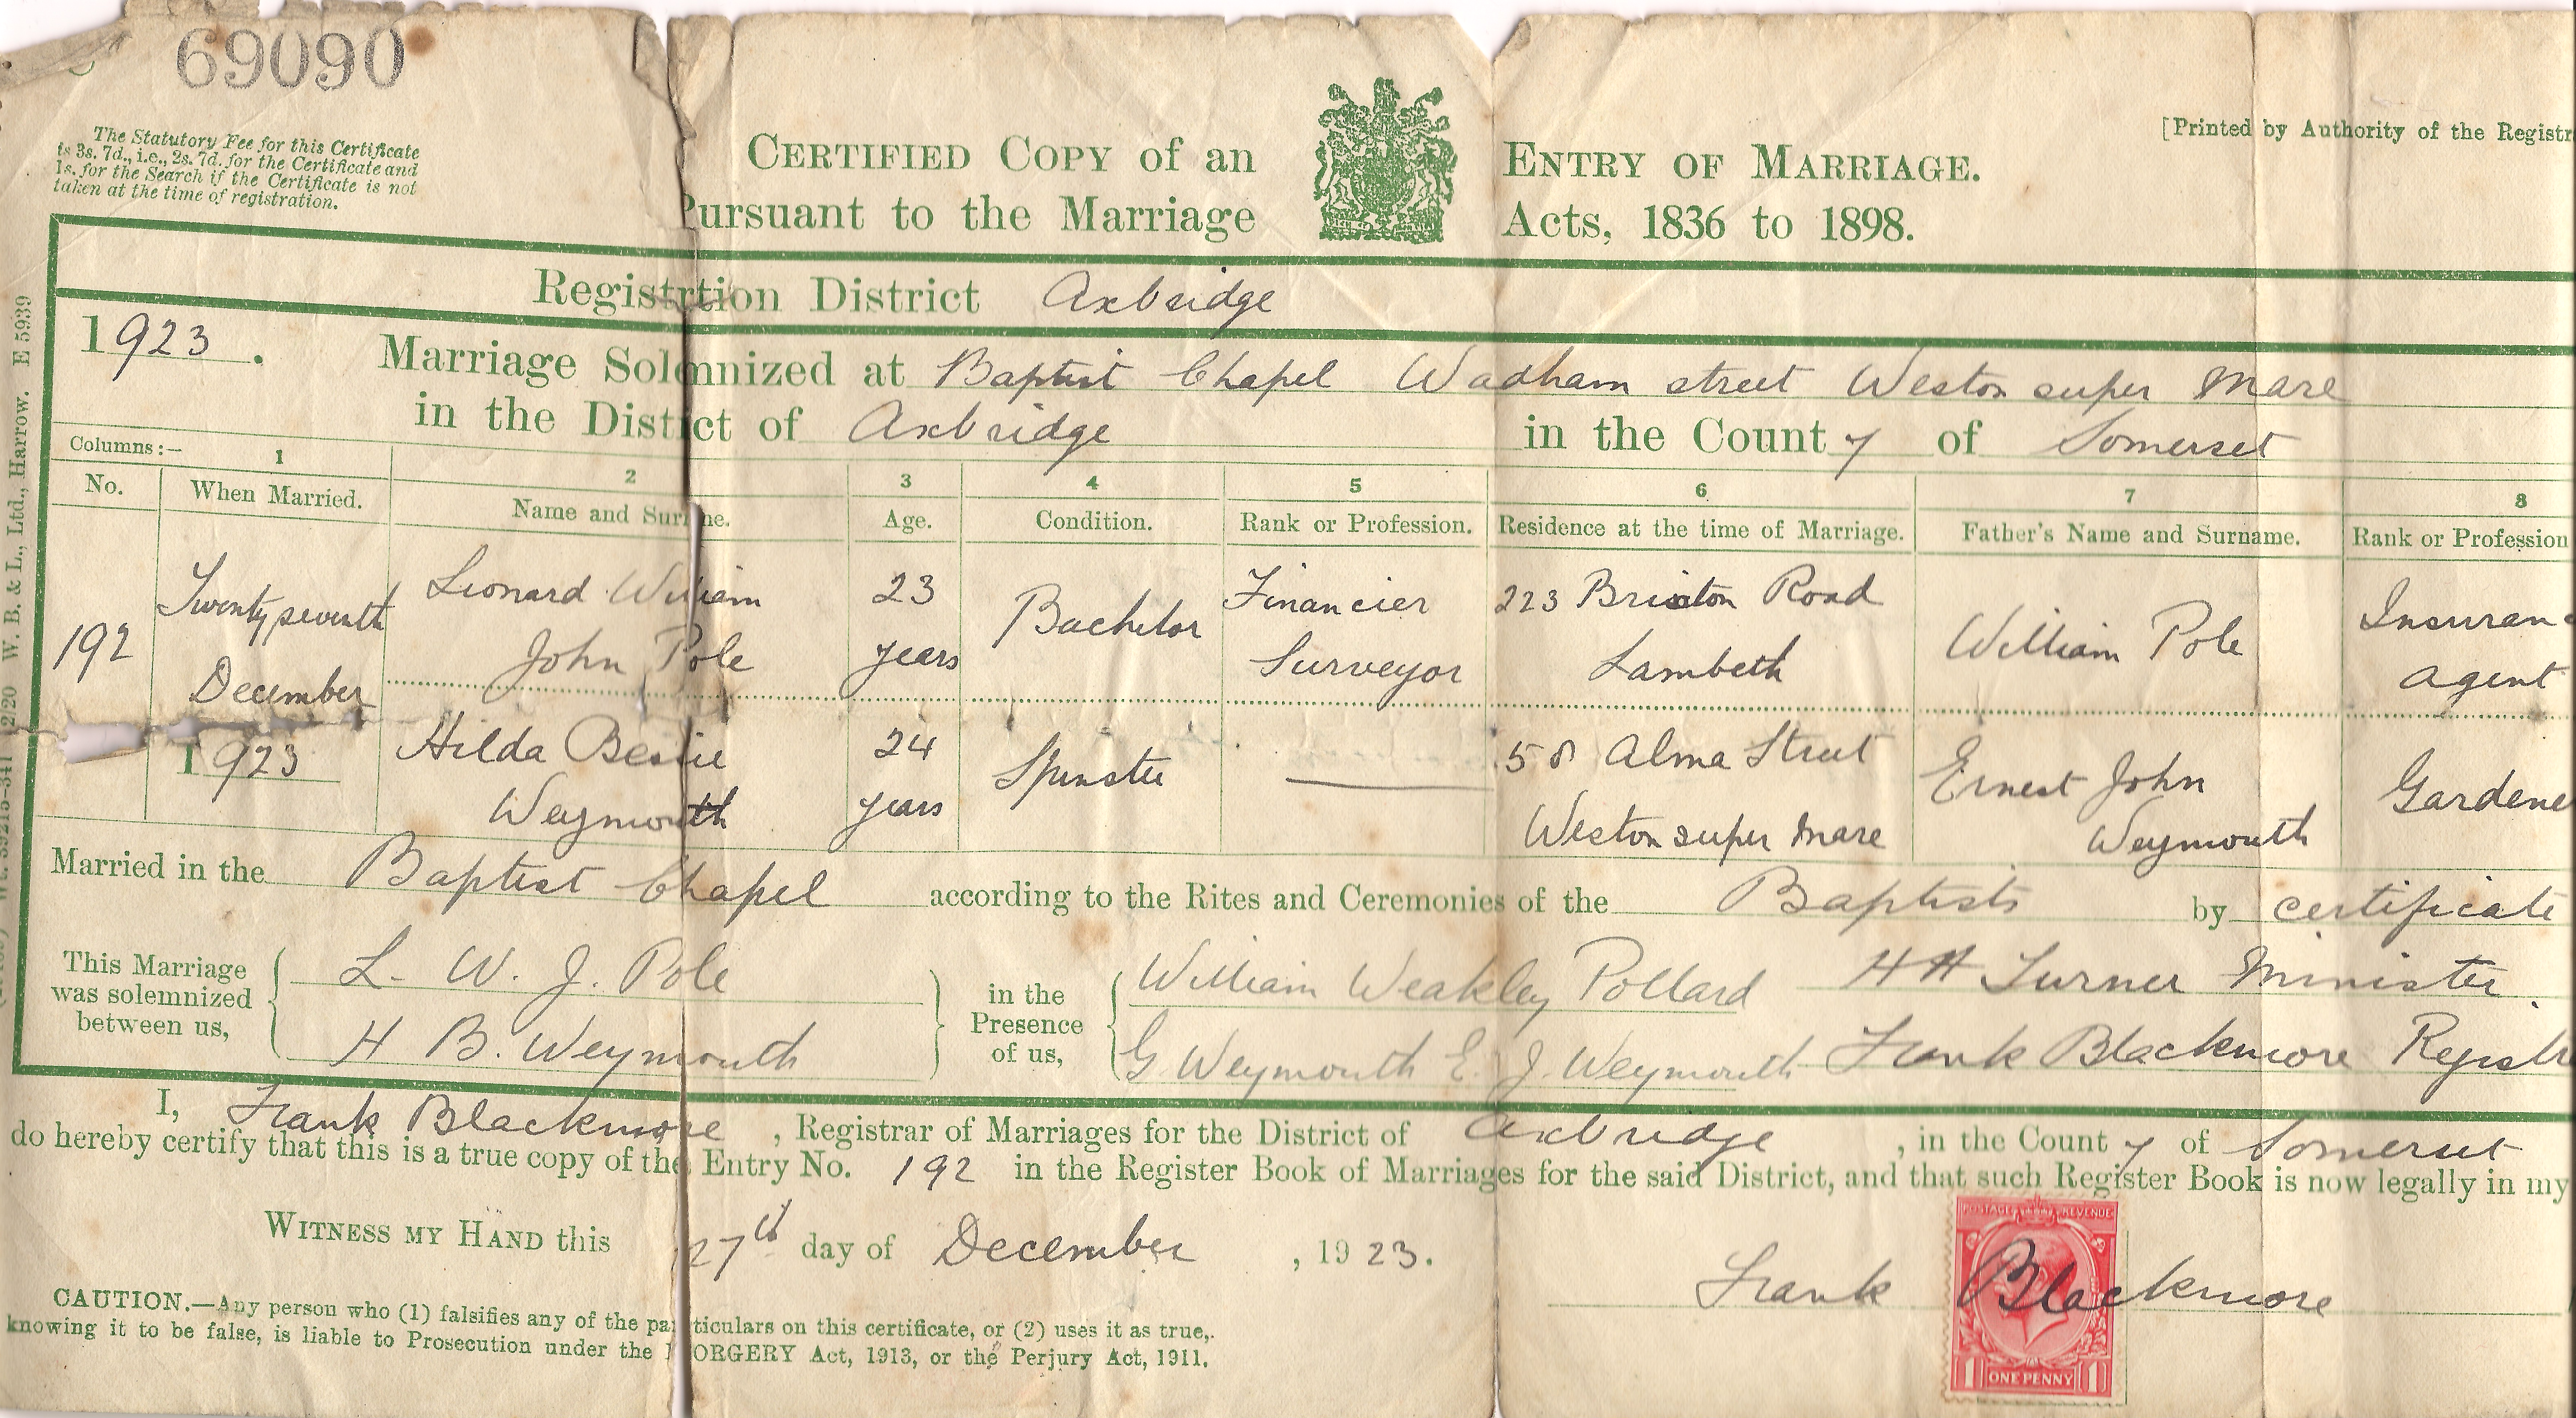 69090
The Statutory Fee for this Certificate
is 3s. 7d., i.e., 2s. 7d. for the Certificate and
1s. for the Search if the Certificate is not
taken at the time of registration.
CERTIFIED COPY of an ENTRY OF MARRIAGE.
Pursuant to the Marriage Acts, 1836 to 1898.
[Printed by Authority of the Registr
Registrtion District Axbridge
1923. Marriage Solemnized at Baptist Chapel Wadham street Weston super Mare
in the District of Axbridge in the County of Somerset
Columns:— 1 2 3 4 5 6 7 8
No. When Married. Name and Surname. Age. Condition. Rank or Profession. Residence at the time of Marriage. Father's Name and Surname. Rank or Profession
192 Twenty seventh December 1923
Leonard William John Pole 23 years Bachelor Financier Surveyor 223 Brixton Road Lambeth William Pole Insuran agent
Hilda Bessie Weymouth 24 years Spinster —— 58 Alma Street Weston super Mare Ernest John Weymouth Gardene
Married in the Baptist Chapel according to the Rites and Ceremonies of the Baptists by certificate
This Marriage
was solemnized
between us,
L. W. J. Pole
H B. Weymouth
in the
Presence
of us,
William Weakley Pollard
G Weymouth E. J. Weymouth
H H Turner Minister.
Frank Blackmore Registr
I, Frank Blackmore, Registrar of Marriages for the District of Axbridge, in the County of Somerset
do hereby certify that this is a true copy of the Entry No. 192 in the Register Book of Marriages for the said District, and that such Register Book is now legally in my
WITNESS MY HAND this 27th day of December, 1923.
Frank Blackmore
POSTAGE REVENUE
1 ONE PENNY 1
CAUTION.—Any person who (1) falsifies any of the particulars on this certificate, or (2) uses it as true,
knowing it to be false, is liable to Prosecution under the FORGERY Act, 1913, or the Perjury Act, 1911.
W. B. & L., Ltd., Harrow. E 5939